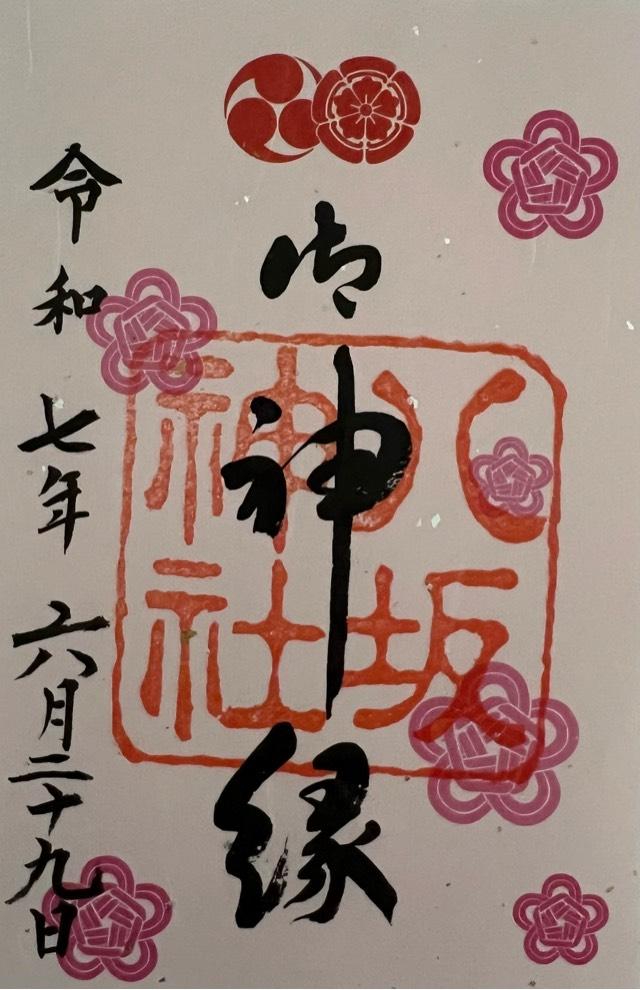 御神縁
八坂神社
令和七年六月二十九日